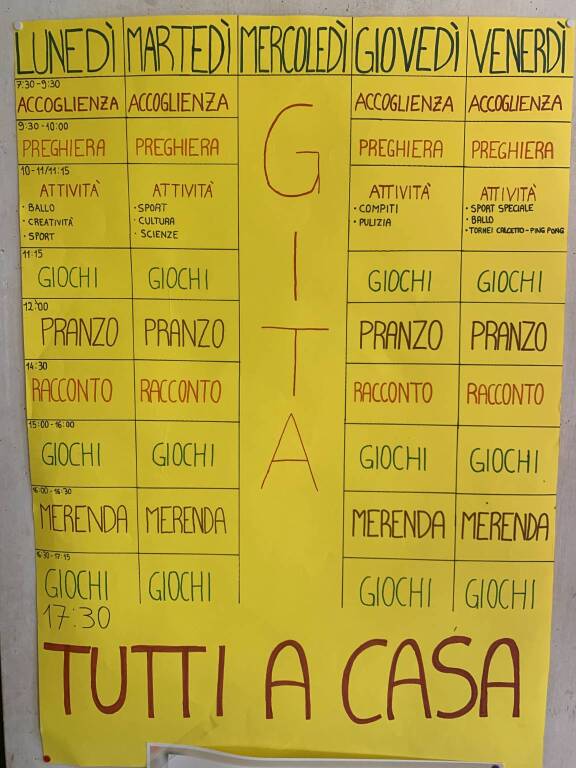 LUNEDÌ MARTEDÌ MERCOLEDÌ GIOVEDÌ VENERDÌ
7:30-9:30
ACCOGLIENZA ACCOGLIENZA ACCOGLIENZA ACCOGLIENZA
9:30-10:00
PREGHIERA PREGHIERA PREGHIERA PREGHIERA
10-11/11:15
ATTIVITÀ ATTIVITÀ ATTIVITÀ ATTIVITÀ
• BALLO • SPORT • COMPITI • SPORT SPECIALE
• CREATIVITÀ • CULTURA • PULIZIA • BALLO
• SPORT • SCIENZE • TORNEI CALCETTO - PING PONG
GITA
11:15
GIOCHI GIOCHI GIOCHI GIOCHI
12:00
PRANZO PRANZO PRANZO PRANZO
14:30
RACCONTO RACCONTO RACCONTO RACCONTO
15:00-16:00
GIOCHI GIOCHI GIOCHI GIOCHI
16:00-16:30
MERENDA MERENDA MERENDA MERENDA
16:30-17:15
GIOCHI GIOCHI GIOCHI GIOCHI
17:30
TUTTI A CASA